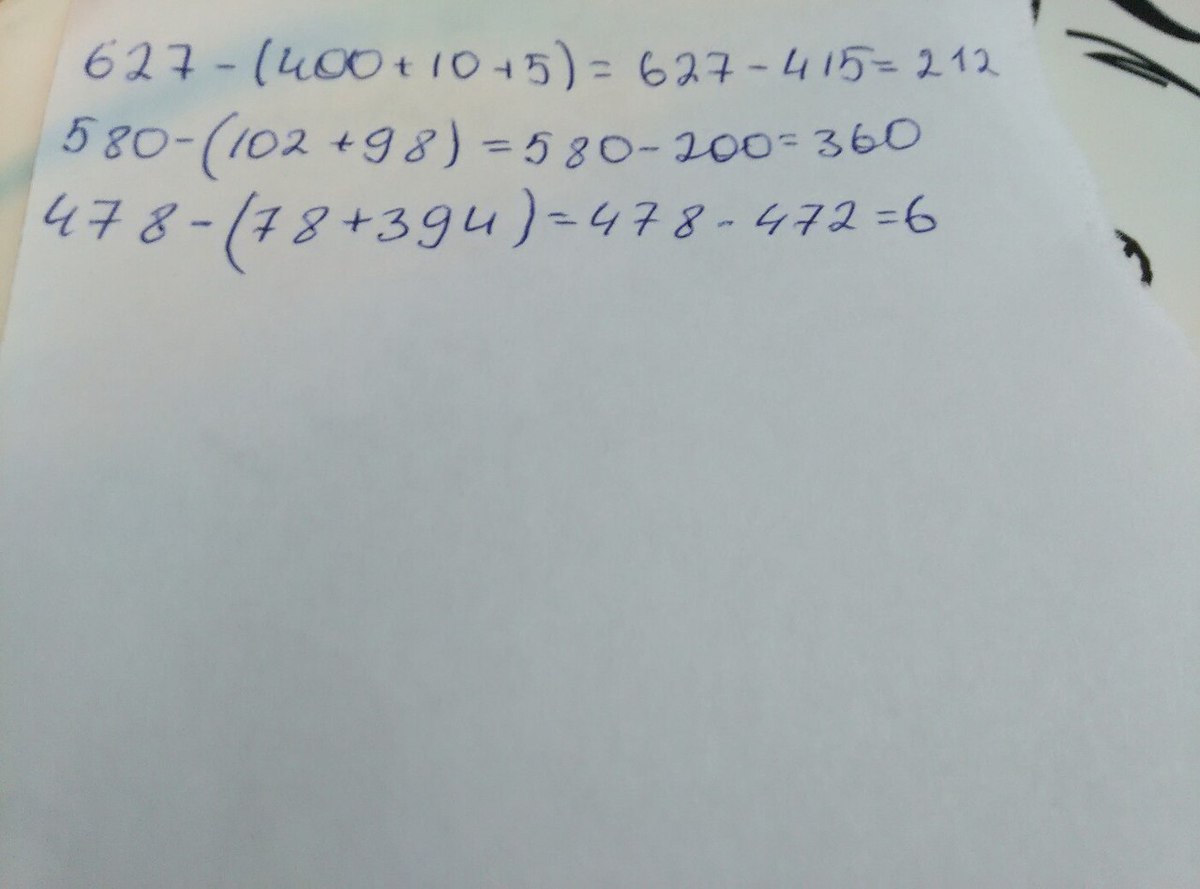 627-(400+10+5)=627-415=212
580-(102+98)=580-200=360
478-(78+394)=478-472=6